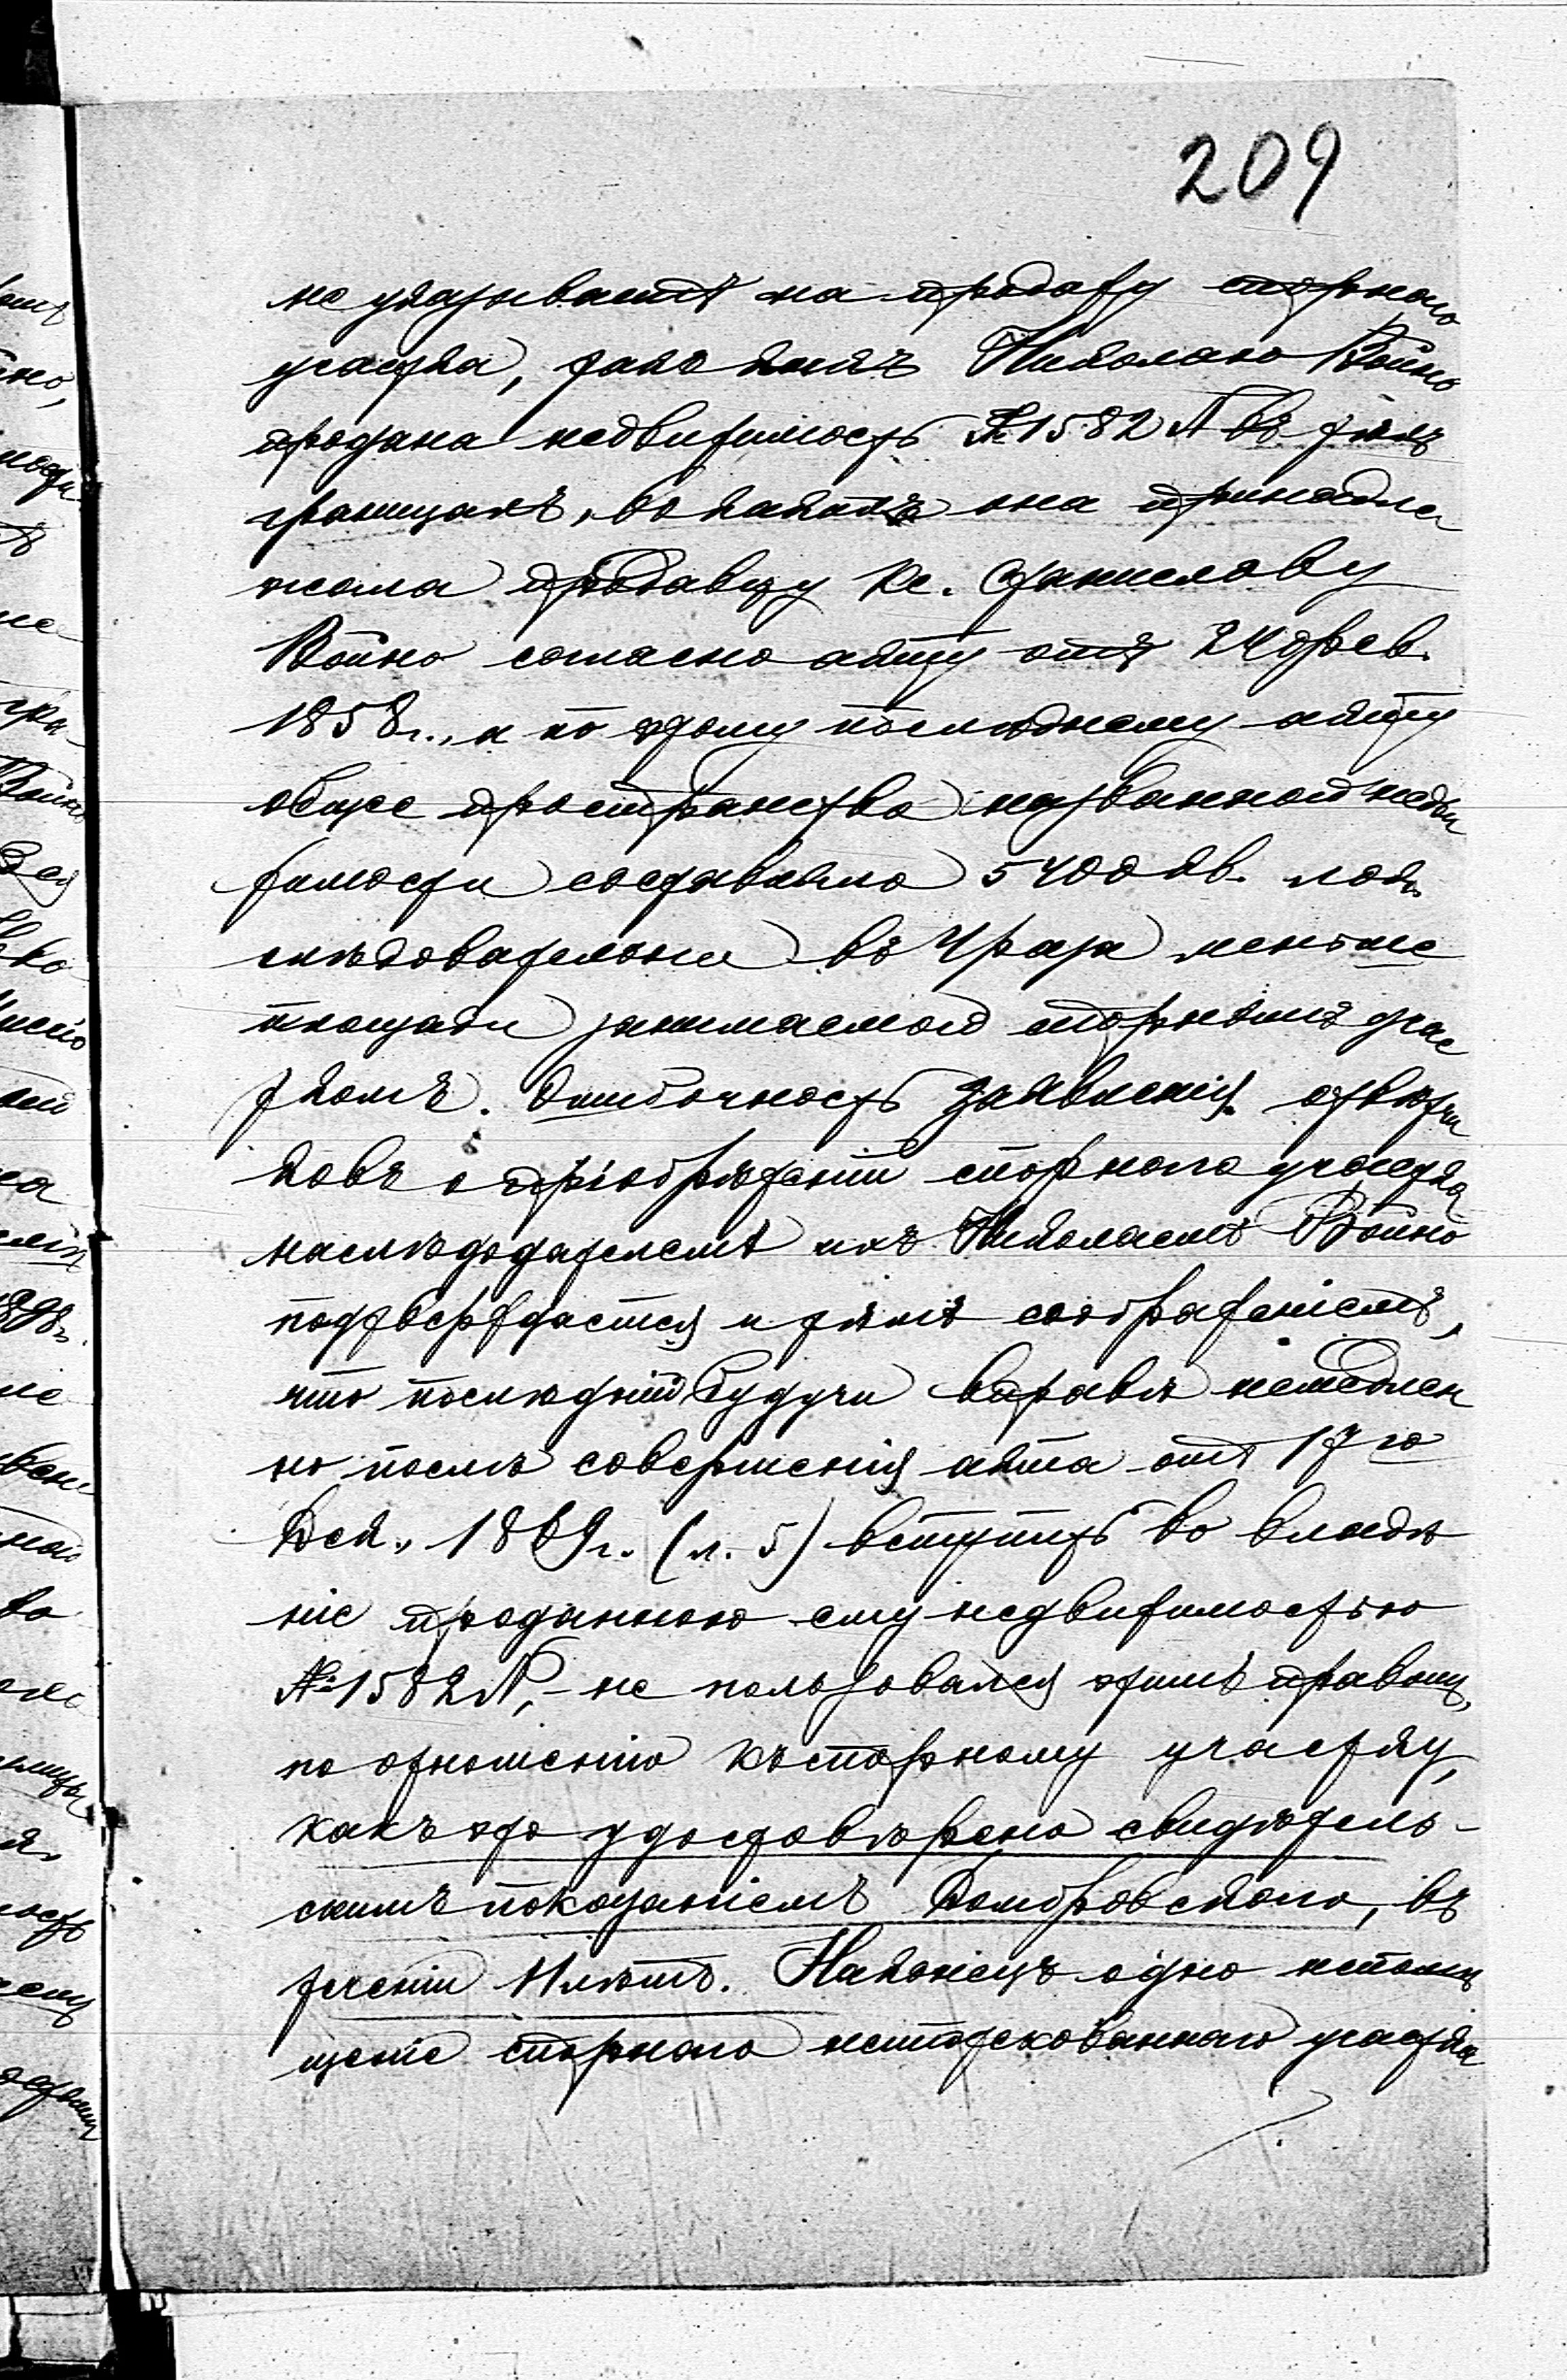 209
не указываетъ на продажу спорнаго
участка, такъ какъ Николаю Войно
продана недвижимость № 1582 А въ тѣхъ
границахъ, въ какихъ она принадле
жала продавцу Кс. Станиславу
Войно согласно акту отъ 24 Февр.
1858 г., а по этому послѣднему акту
общее пространство названной недви
жимости составляло 5400 кв. лок.
слѣдовательно въ 4 раза меньше
площади занимаемой спорнымъ учас
ткомъ. Ошибочность заявленія отвѣтчи
ковъ о пріобрѣтеніи спорнаго участка
наслѣдодателемъ ихъ Николаемъ Войно
подтверждается и тѣмъ соображеніемъ,
что послѣдній будучи вправѣ немедлен
но послѣ совершенія акта отъ 17 го
Дек. 1869 г. (л. 5) вступить во владѣ
ніе проданною ему недвижимостью
№ 1582 А, - не пользовался этимъ правомъ,
по отношенію къ спорному участку,
какъ это удостовѣрено свидѣтель-
скимъ показаніемъ Домбровскаго, въ
теченіи лѣтъ. Наконецъ одно
щеніе спорнаго участка